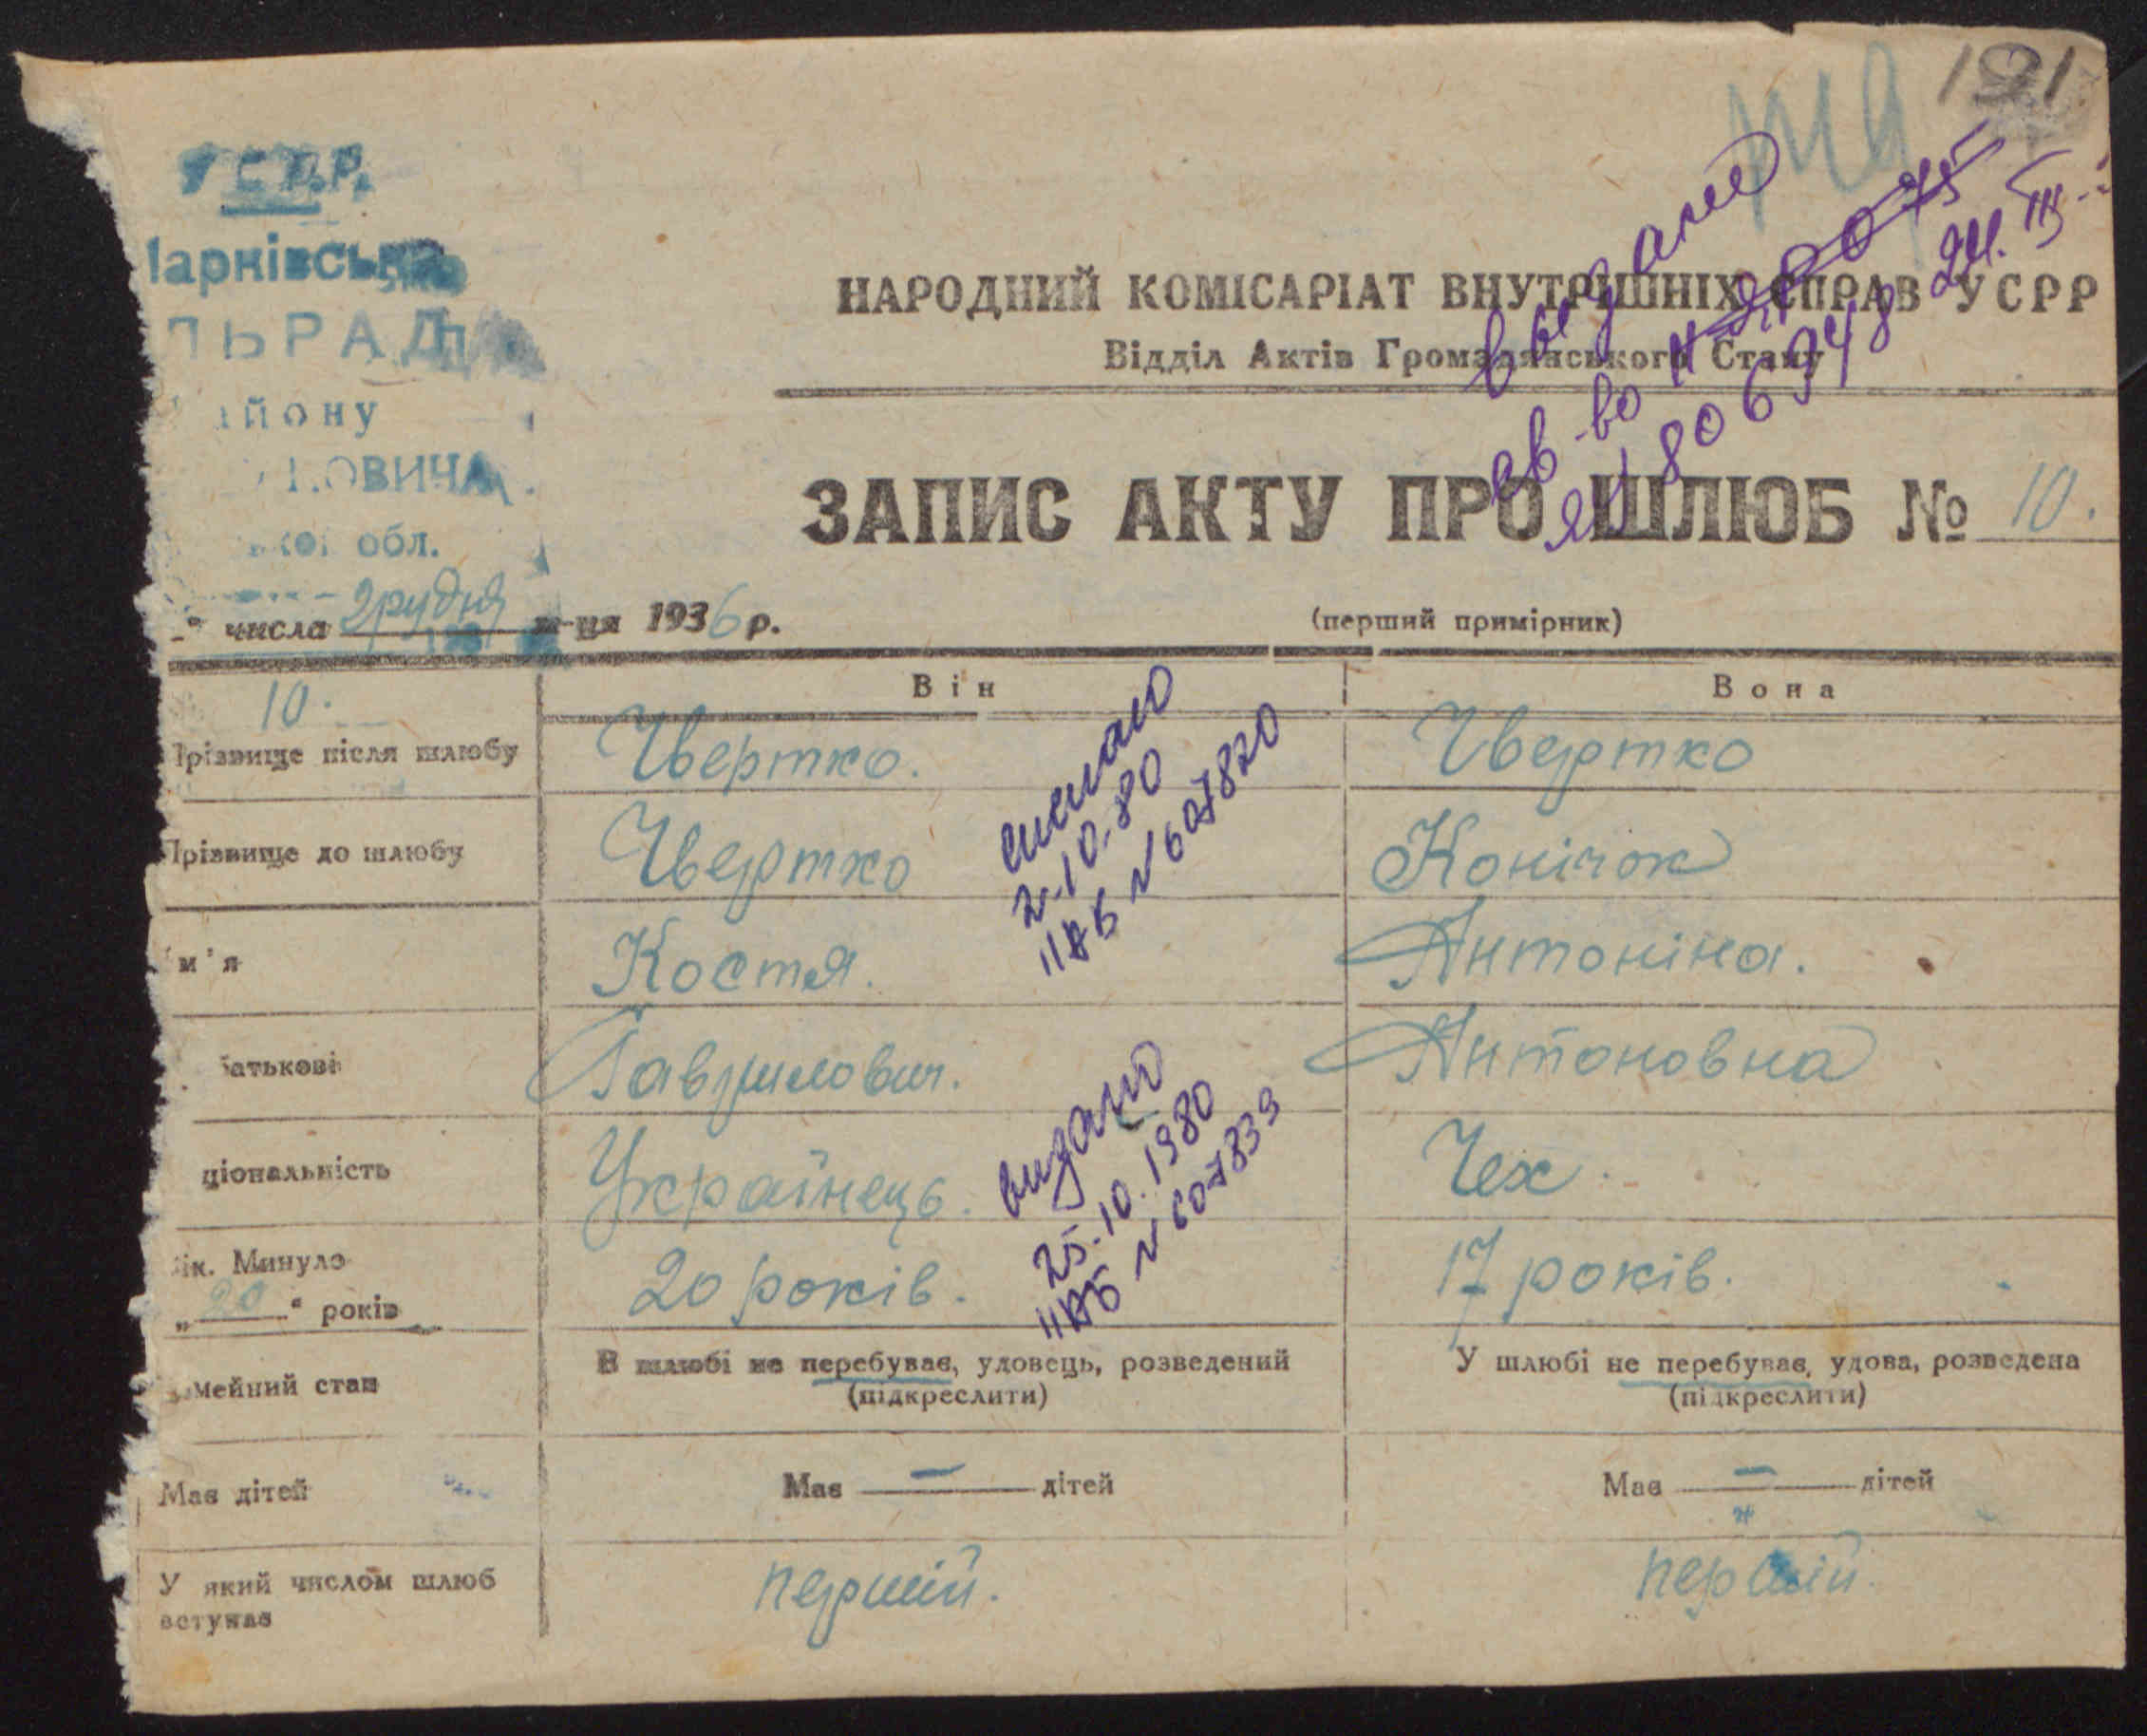 191
У С Р.Р.
арківська
ЛЬРАД
йону
ОВИЧА
кої обл.
НАРОДНИЙ КОМІСАРІАТ ВНУТРІШНІХ СПРАВ УСРР
Відділ Актів Громадянського Стану
ЗАПИС АКТУ ПРО ШЛЮБ № 10.
числа грудня м-ця 1936 р.
(перший примірник)
10.
Він
Вона
Прізвище після шлюбу Чвертко. Чвертко
Прізвище до шлюбу Чвертко Конічок
м'я Костя. Антоніна.
батькові Гаврилович. Антоновна
ціональність Українець. Чех.
ік. Минуло
„20“ років 20 років. 17 років.
мейний стан В шлюбі не перебував, удовець, розведений У шлюбі не перебував, удова, розведена
(підкреслити) (підкреслити)
Має дітей Має — дітей Має — дітей
У який числом шлюб
вступає перший. перший.
2.10.80
ІІ АБ № 607820
видано
25.10.1980
ІІ АБ № 607839